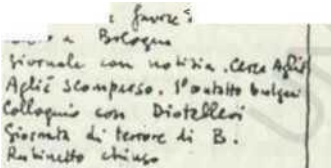 favore
a Bologna
Giornale con notizia. Cerca Agliè
Agliè scomparso. Contatto bulgari
Colloquio con Diotallevi
Giornata di terrore di B.
Rubinetto chiuso